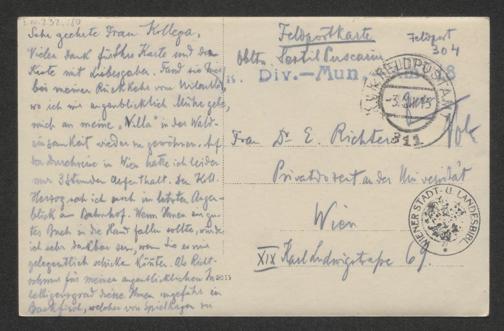 I.N. 232.150
Sehr geehrte Frau Kollega,
Vielen Dank für Ihre Karte und die
Kiste mit Liebesgaben. Fand sie hier
bei meiner Rückkehr vom
wo ich mir augenblicklich Mühe gebe,
mich an meine "Villa" in der Wald-
einsamkeit wieder zu gewöhnen. Auf
der Durchreise in Wien hatte ich leider
nur 3 Stunden Aufenthalt. Den Koll.
Herzog sah ich noch im letzten Augen-
blick am Bahnhof. Wenn Ihnen ein gu-
tes Buch in die Hand fallen sollte, würde
ich sehr dankbar sein, wenn Sie es mir
gelegentlich schicken könnten. Als Richt-
schnur für meinen augenblicklichen In-
telligenzgrad diene Ihnen ungefähr ein
Backfisch, welcher von Spielhagen zu
Feldpostkarte
Feldpost
304
Obltn. Sextil Puscariu
Div.-Mun.
K.u.K. FELDPOSTAMT
311
Frau Dr. E. Richter
Privatdozent an der Universität
Wien
XIX Karl Ludwigstrasse 69.
WIENER STADT- U. LANDESBIBL.